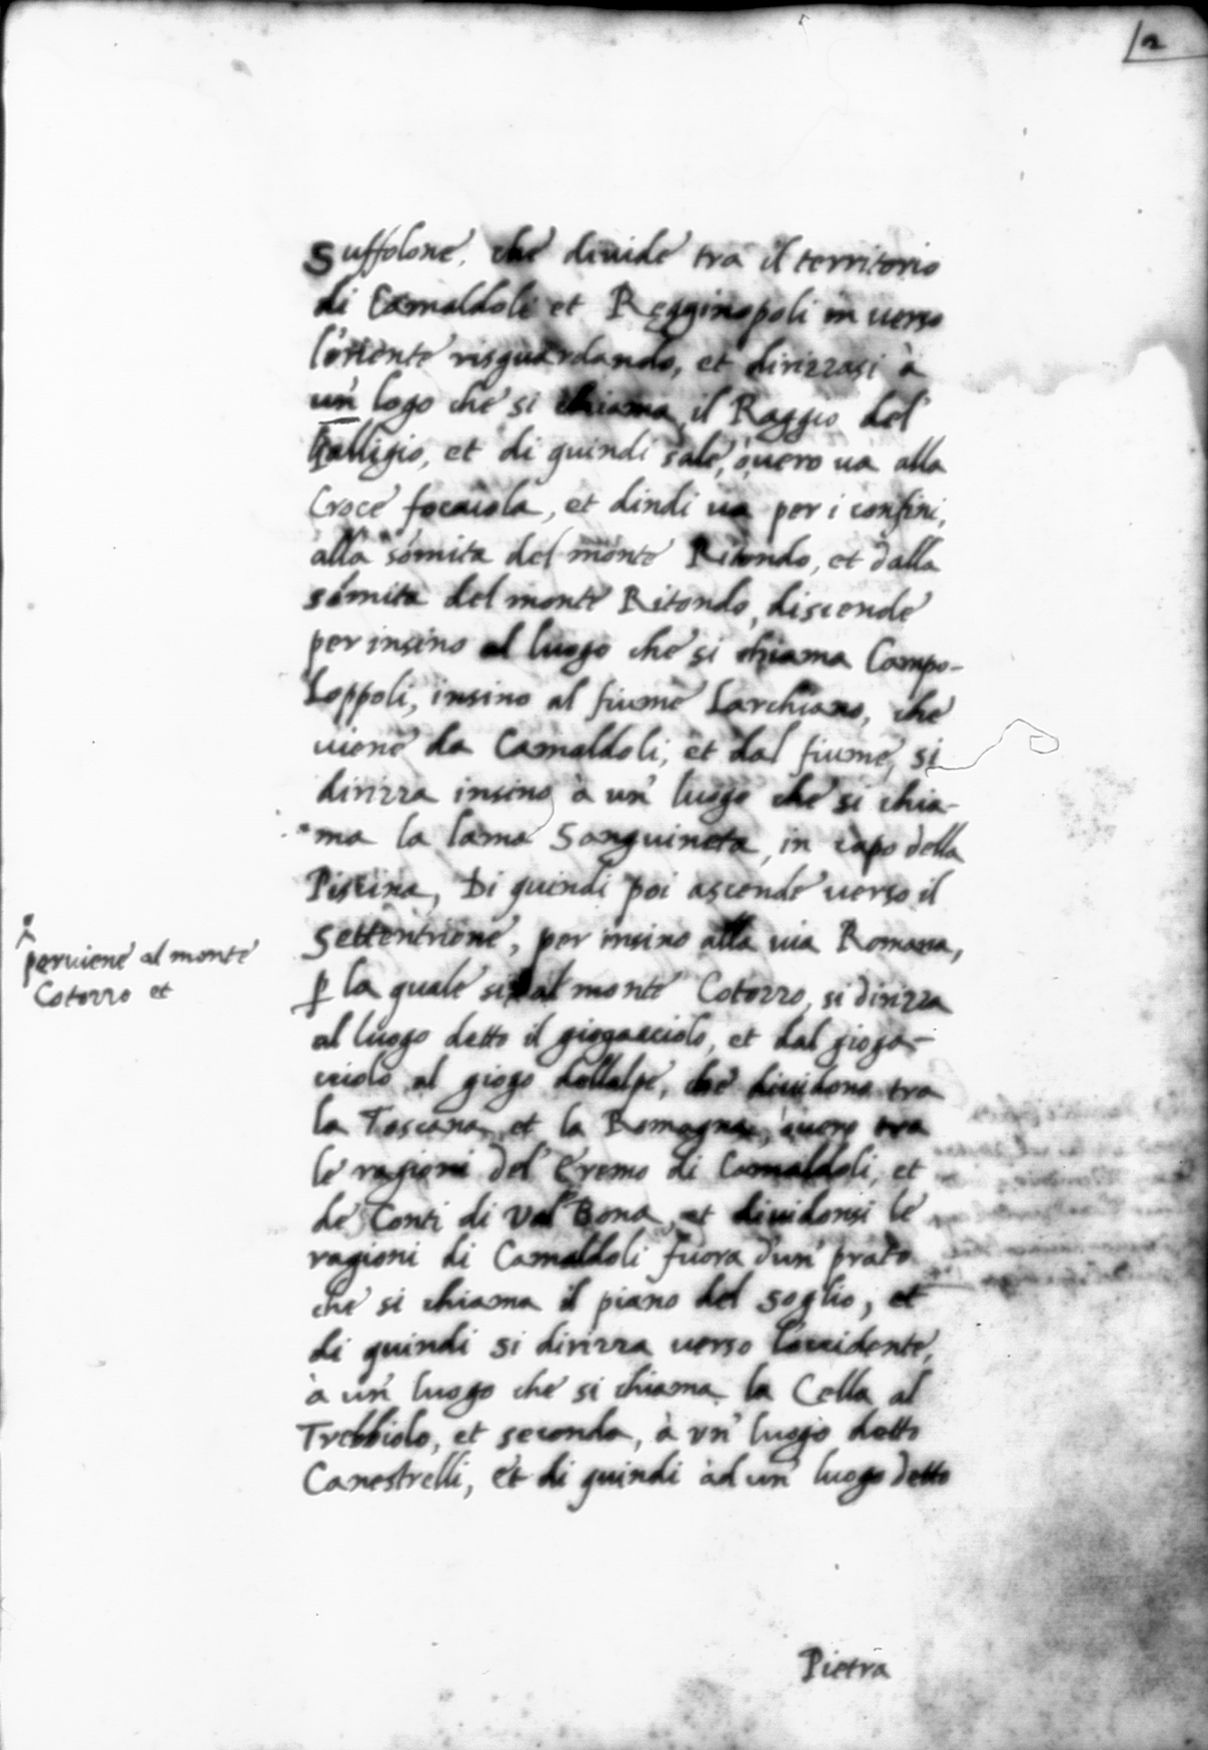 2
Suffolone, che diuide tra il territorio
di Camaldoli et Regginopoli in uerso
l'oriente risguardando, et dirizzasi à
un' logo che si chiama il Raggio del'
Galligio, et di quindi sale, ò uero ua alla
Croce focaiola, et dindi ua per i confini,
alla sómita del monte Ritondo, et dalla
sómita del monte Ritondo, discende
per insino al luogo che si chiama Campo-
Loppoli, insino al fiume Larchiano, che
uiene da Camaldoli, et dal fiume, si
dirizza insino à un' luogo che si chia-
ma la lama Sanguineta, in capo della
Piscina, Di quindi poi ascende uerso il
Settentrione, per insino alla uia Romana,
perviene al monte
Cotozzo et
ꝑ la quale si al monte Cotozzo, si dirizza
al luogo detto il giogacciolo, et dal gioga-
cciolo al giogo dellalpe, che diuidono tra
la Toscana, et la Romagna, ò uero tra
le ragioni del' Eremo di Camaldoli, et
de Conti di Val Bona, et diuidonsi le
ragioni di Camaldoli fuora d'un' prato
che si chiama il piano del soglio, et
di quindi si dirizza uerso l'occidente,
à un' luogo che si chiama la Cella al
Trebbiolo, et seconda, à un' luogo detto
Canestrelli, et di quindi ad un' luogo detto
Pietra